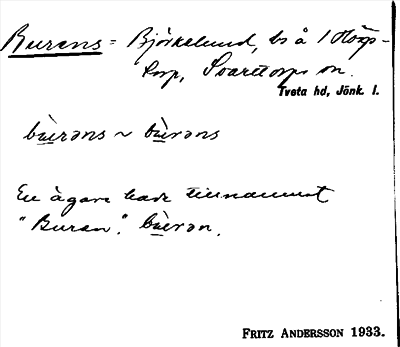 Burens = Björkelund, bs å 1
torp, Svarttorps sn.
Tveta hd, Jönk. l.
bùrəns ~ bùrəns
En ägare hade tillnamnet
"Buren". bùrən.
FRITZ ANDERSSON 1933.